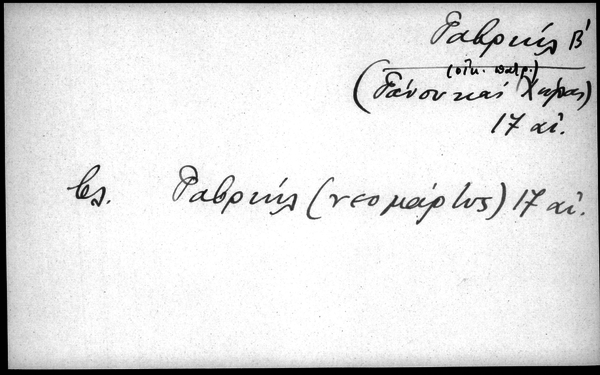 Γαβριήλ Β´
(οἰκ. πατρ.)
(Γάνου καί Χώρας)
17 αἰ.
βλ. Γαβριήλ (νεομάρτυς) 17 αἰ.